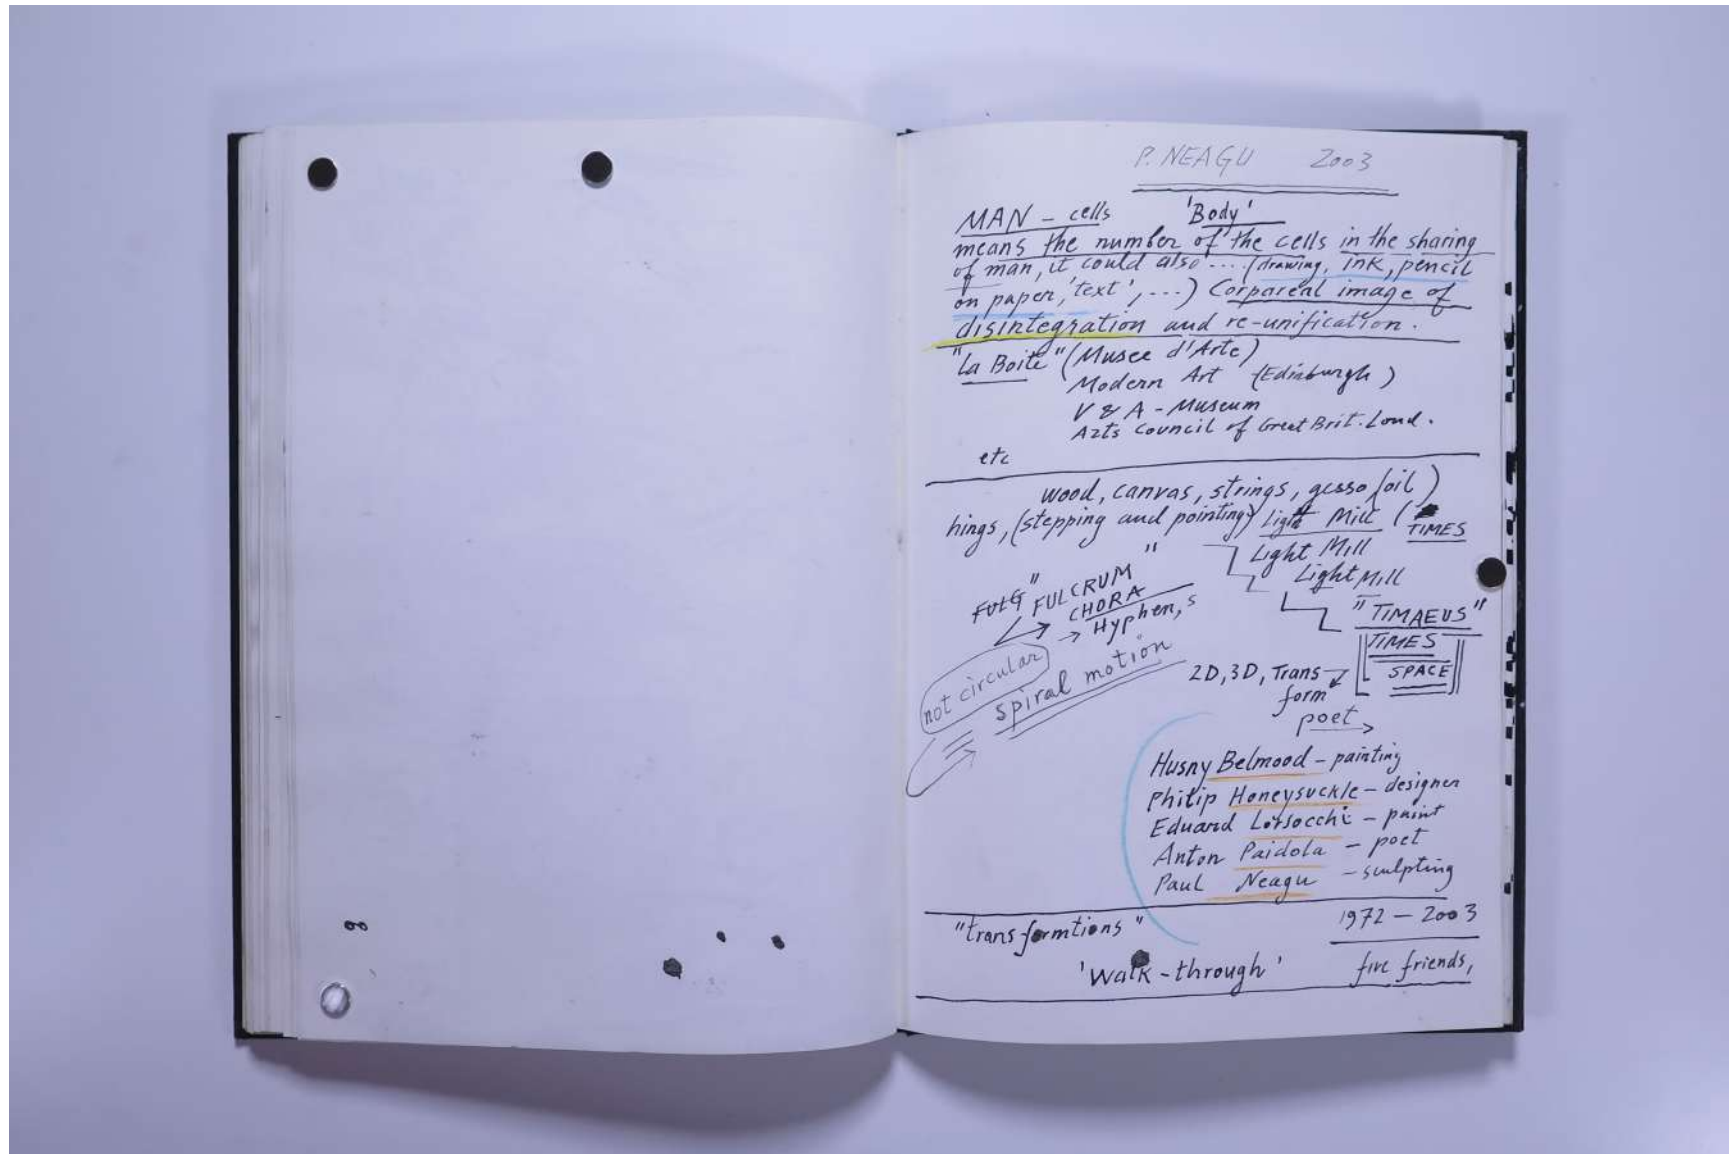 P. NEAGU 2003
MAN - cells 'Body'
means the number of the cells in the sharing
of man, it could also .... (drawing, ink, pencil
on paper, 'text', ...) Corpareal image of
disintegration and re-unification.
"La Boite" (Musee d'Arte)
Modern Art (Edinburgh)
V & A - Museum
Arts Council of Great Brit. Lond.
etc
wood, canvas, strings, gesso (oil)
hings, (stepping and pointing) Light Mill (TIMES
Light Mill
Light Mill
"TIMAEUS"
TIMES
SPACE
"FULCRUM"
CHORA
→ Hyphen, s
not circular
spiral motion
2D, 3D, Trans
form
poet →
Husny Belmood - painting
Philip Honeysuckle - designer
Eduard Larsocchi - paint
Anton Paidola - poet
Paul Neagu - sculpting
"trans-formtions" 1972 - 2003
'Walk-through' five friends,